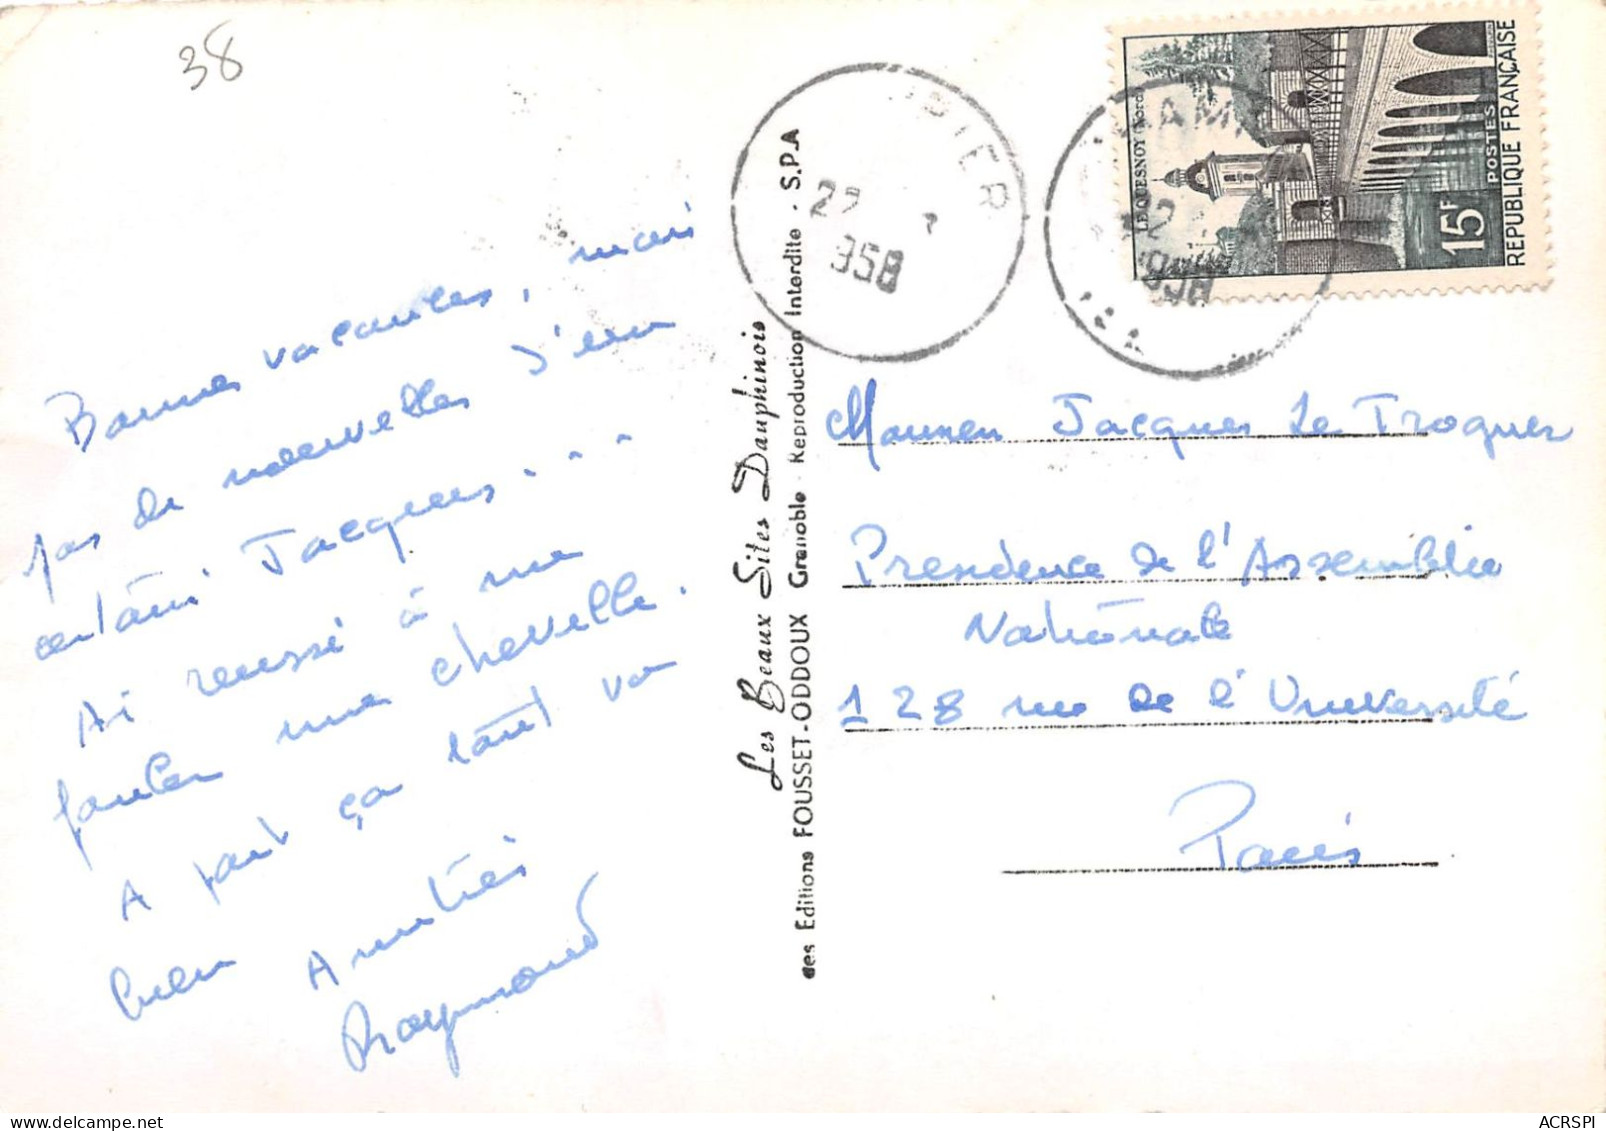 38
Bonnes vacances, mais
pas de nouvelles d'un
certain Jacques . . .
Ai reussi à me
fouler une cheville.
A part ça tout va
bien Amitiés
Raymond
Les Beaux Sites Dauphinois
des Editions FOUSSET-ODDOUX Grenoble - Reproduction Interdite - S.P.A
DIER
22
958
LE QUESNOY (Nord)
15F
POSTES
REPUBLIQUE FRANÇAISE
Monsieur Jacques Le Troquer
Présidence de l'Assemblée
Nationale
128 rue de l'Université
Paris
ACRSPI